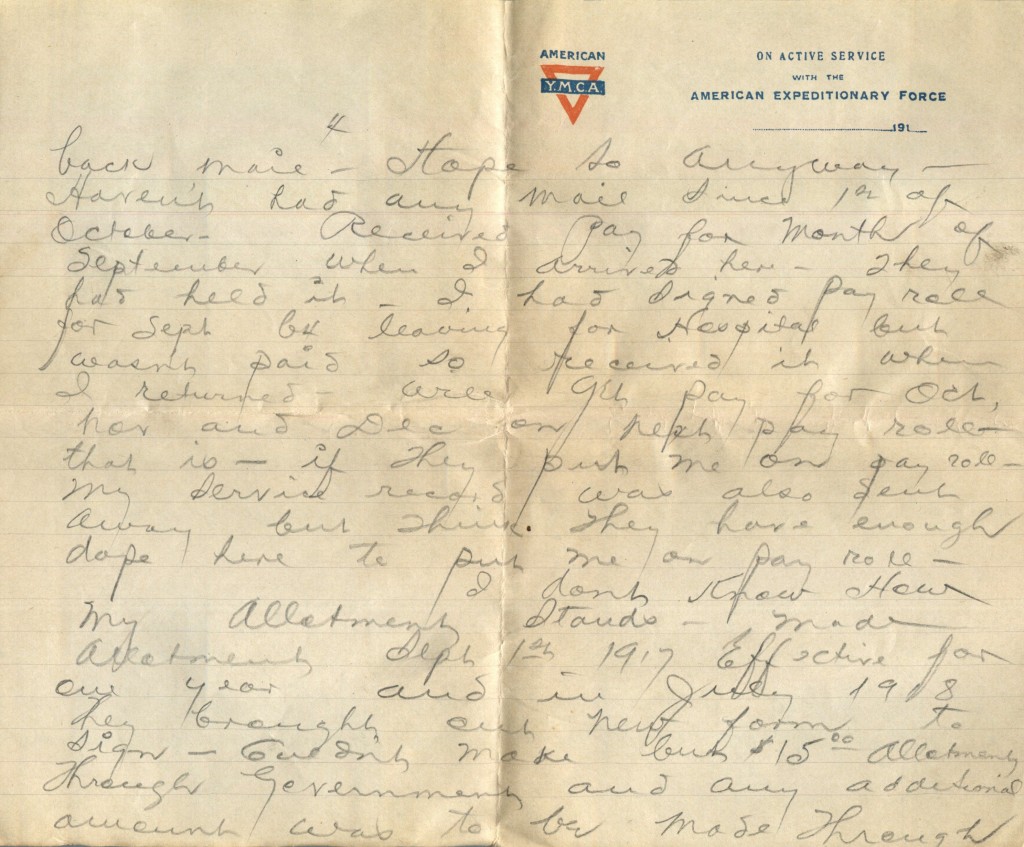 AMERICAN
Y.M.C.A.
ON ACTIVE SERVICE
WITH THE
AMERICAN EXPEDITIONARY FORCE
191
4
back mail – Hope so anyway –
Haven't had any mail since 1st of
October – Received Pay for Month of
September when I arrived here – They
had held it – I had signed pay roll
for Sept b4 leaving for Hospital but
wasn't paid so received it when
I returned – will get pay for Oct,
Nov and Dec on next pay roll –
that is – if They put me on pay roll –
My service record was also sent
away but think They have enough
dope here to put me on pay roll –
I dont Know How
My Allotment Stands – Made
Allotment Sept 1st 1917 Effective for
one year and in July 1918
They brought out new form to
sign – Couldn't make but $15.00 Allotment
Through Government and any additional
amount was to be made Through